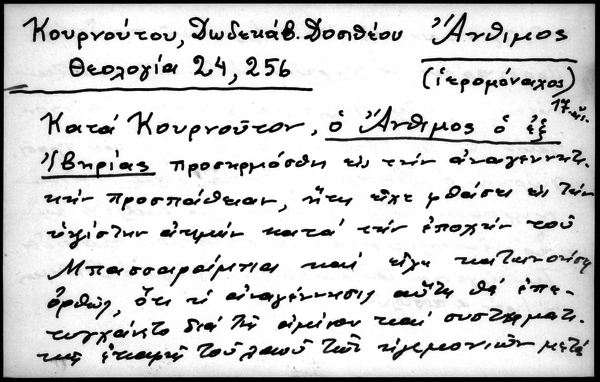 Κουρνούτου, Δωδεκάβ. Δοσιθέου Ἄνθιμος
Θεολογία 24, 256 (ἱερομόναχος)
17
Κατά Κουρνοῦτον, ὁ Ἄνθιμος ὁ ἐξ
Ἰβηρίας προσηρμόσθη εἰς τήν ἀναγεννητι-
κήν προσπάθειαν, ἥτις εἶχε φθάσει εἰς τήν
ὑψίστην ἀκμήν κατά τήν ἐποχήν τοῦ
Μπασσαράμπα καί εἶχε κατανοήσει
ὀρθῶς, ὅτι ἡ ἀναγέννησις αὕτη θά ἐπε-
τυγχάνετο διά τῆς ἀμέσου καί συστηματι-
κῆς ἐπαφῆς τοῦ λαοῦ τῶν ἡγεμονιῶν μετά